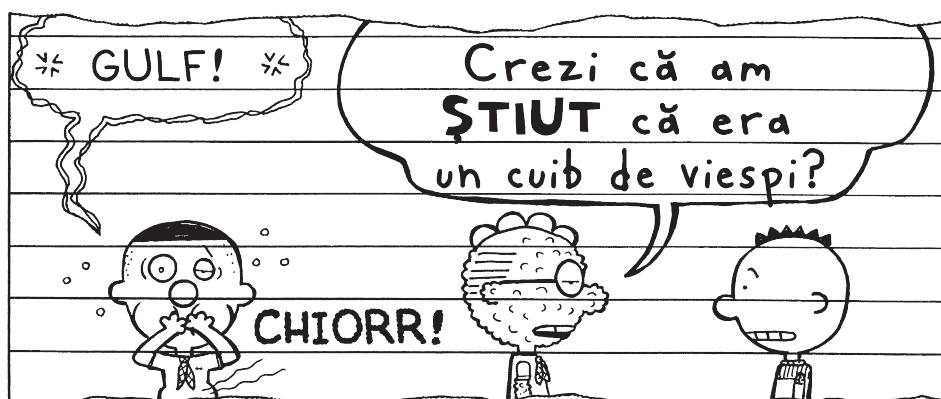 GULF!
Crezi că am
ȘTIUT că era
un cuib de viespi?
CHIORR!